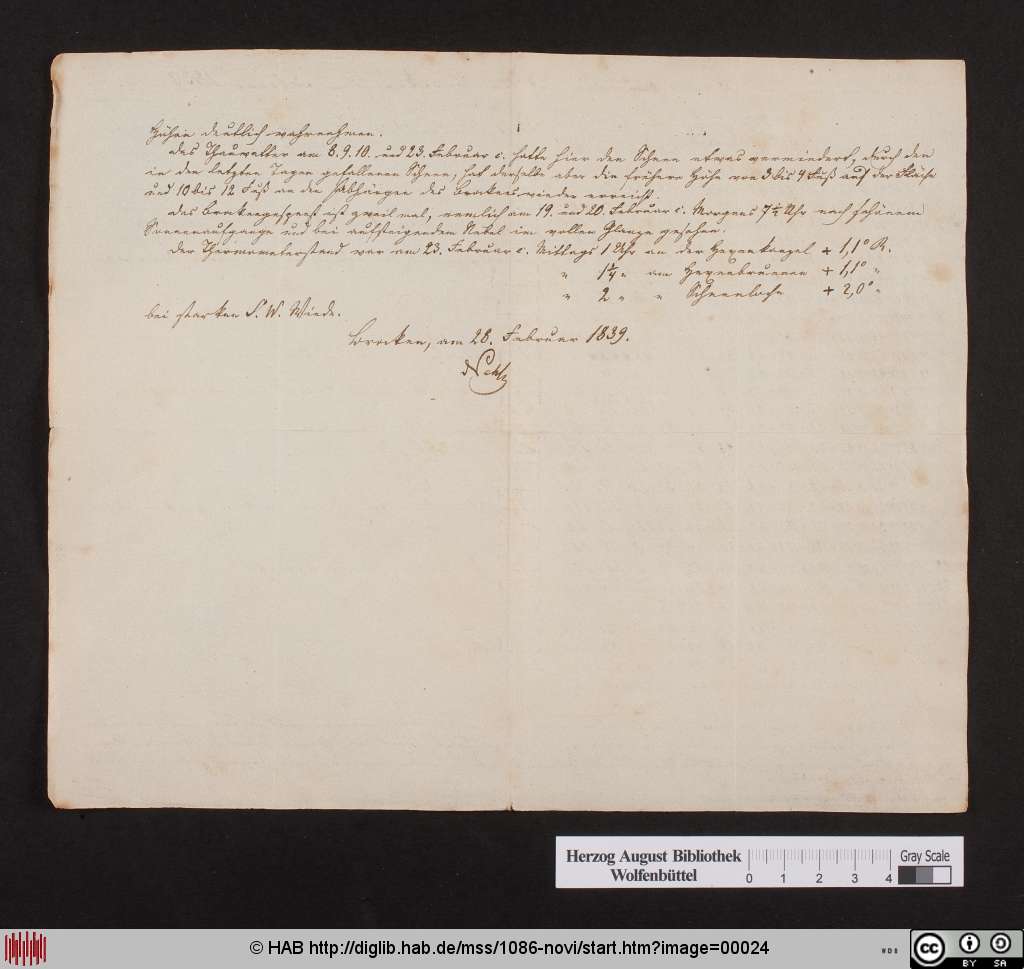 Höhen deutlich wahrnehmen.
Das Thauwetter am 8. 9. 10. und 23. Februar c. hatte hier den Schnee etwas vermindert, durch den
in den letzten Tagen gefallenen Schnee, hat derselbe aber die frühere Höhe von 3 bis 4 Fuß auf der Fläche
und 10 bis 12 Fuß an den Abhängen des Brockens wieder erreicht.
Das Brockengespenst ist zweil mal, nemlich am 19. und 20. Februar c. Morgens 7 1/2 Uhr nach schönem
Sonnenaufgange und bei aufsteigendem Nebel im vollen Glanze gesehen.
Der Thermometerstand war am 23. Februar c. Mittags 1 Uhr an der Hexenkanzel + 1,1° R.
" 1 1/4 " am Hexenbrunnen + 1,1° "
" 2 " " Schneeloche + 2,0° "
bei starken S. W. Winde.
Brocken, am 28. Februar 1839.
Herzog August Bibliothek
Wolfenbüttel
0 1 2 3 4
Gray Scale
© HAB http://diglib.hab.de/mss/1086-novi/start.htm?image=00024
WDB
cc BY SA